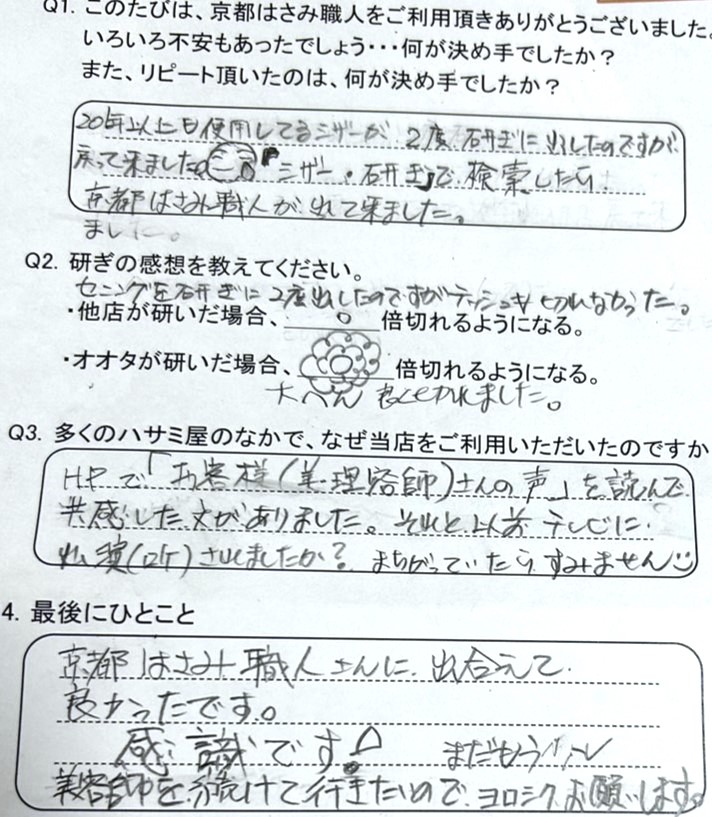 Q1. このたびは、京都はさみ職人をご利用頂きありがとうございました。
いろいろ不安もあったでしょう・・・何が決め手でしたか？
また、リピート頂いたのは、何が決め手でしたか？
20年以上も使用してるシザーが、2度、研ぎに出したのですが、
戻って来ました「シザー・研ぎ」で検索したら
京都はさみ職人が出て来ました。
ました。
Q2. 研ぎの感想を教えてください。
セニングを研ぎに2度出したのですがティッシュも切れなかった。
・他店が研いだ場合、0倍切れるようになる。
・オオタが研いだ場合、倍切れるようになる。
大へん良くせかれました。
Q3. 多くのハサミ屋のなかで、なぜ当店をご利用いただいたのですか
HPで「お客様(美・理容師)さんの声」を読んで
共感した文がありました。それと以前テレビに
出演(ロケ)されましたか？まちがっていたらすみません
4. 最後にひとこと
京都はさみ職人さんに、出合えて
良かったです。
感謝です! まだもう少し
美容師を続けて行きたいので、ヨロシクお願いします。